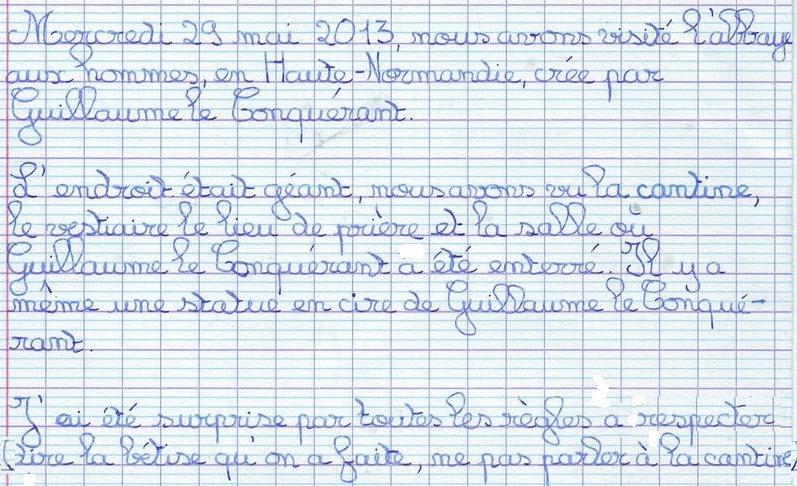 Mercredi 29 mai 2013, nous avons visité l'abbaye
aux hommes, en Haute-Normandie, crée par
Guillaume le Conquérant.
L'endroit était géant, nous avons vu la cantine,
le vestiaire le lieu de prière et la salle où
Guillaume le Conquérant a été enterré. Il y a
même une statue en cire de Guillaume le Conqué-
rant.
J'ai été surprise par toutes les règles a respecter
(dire la bêtise qu'on a faite, ne pas parler à la cantine)